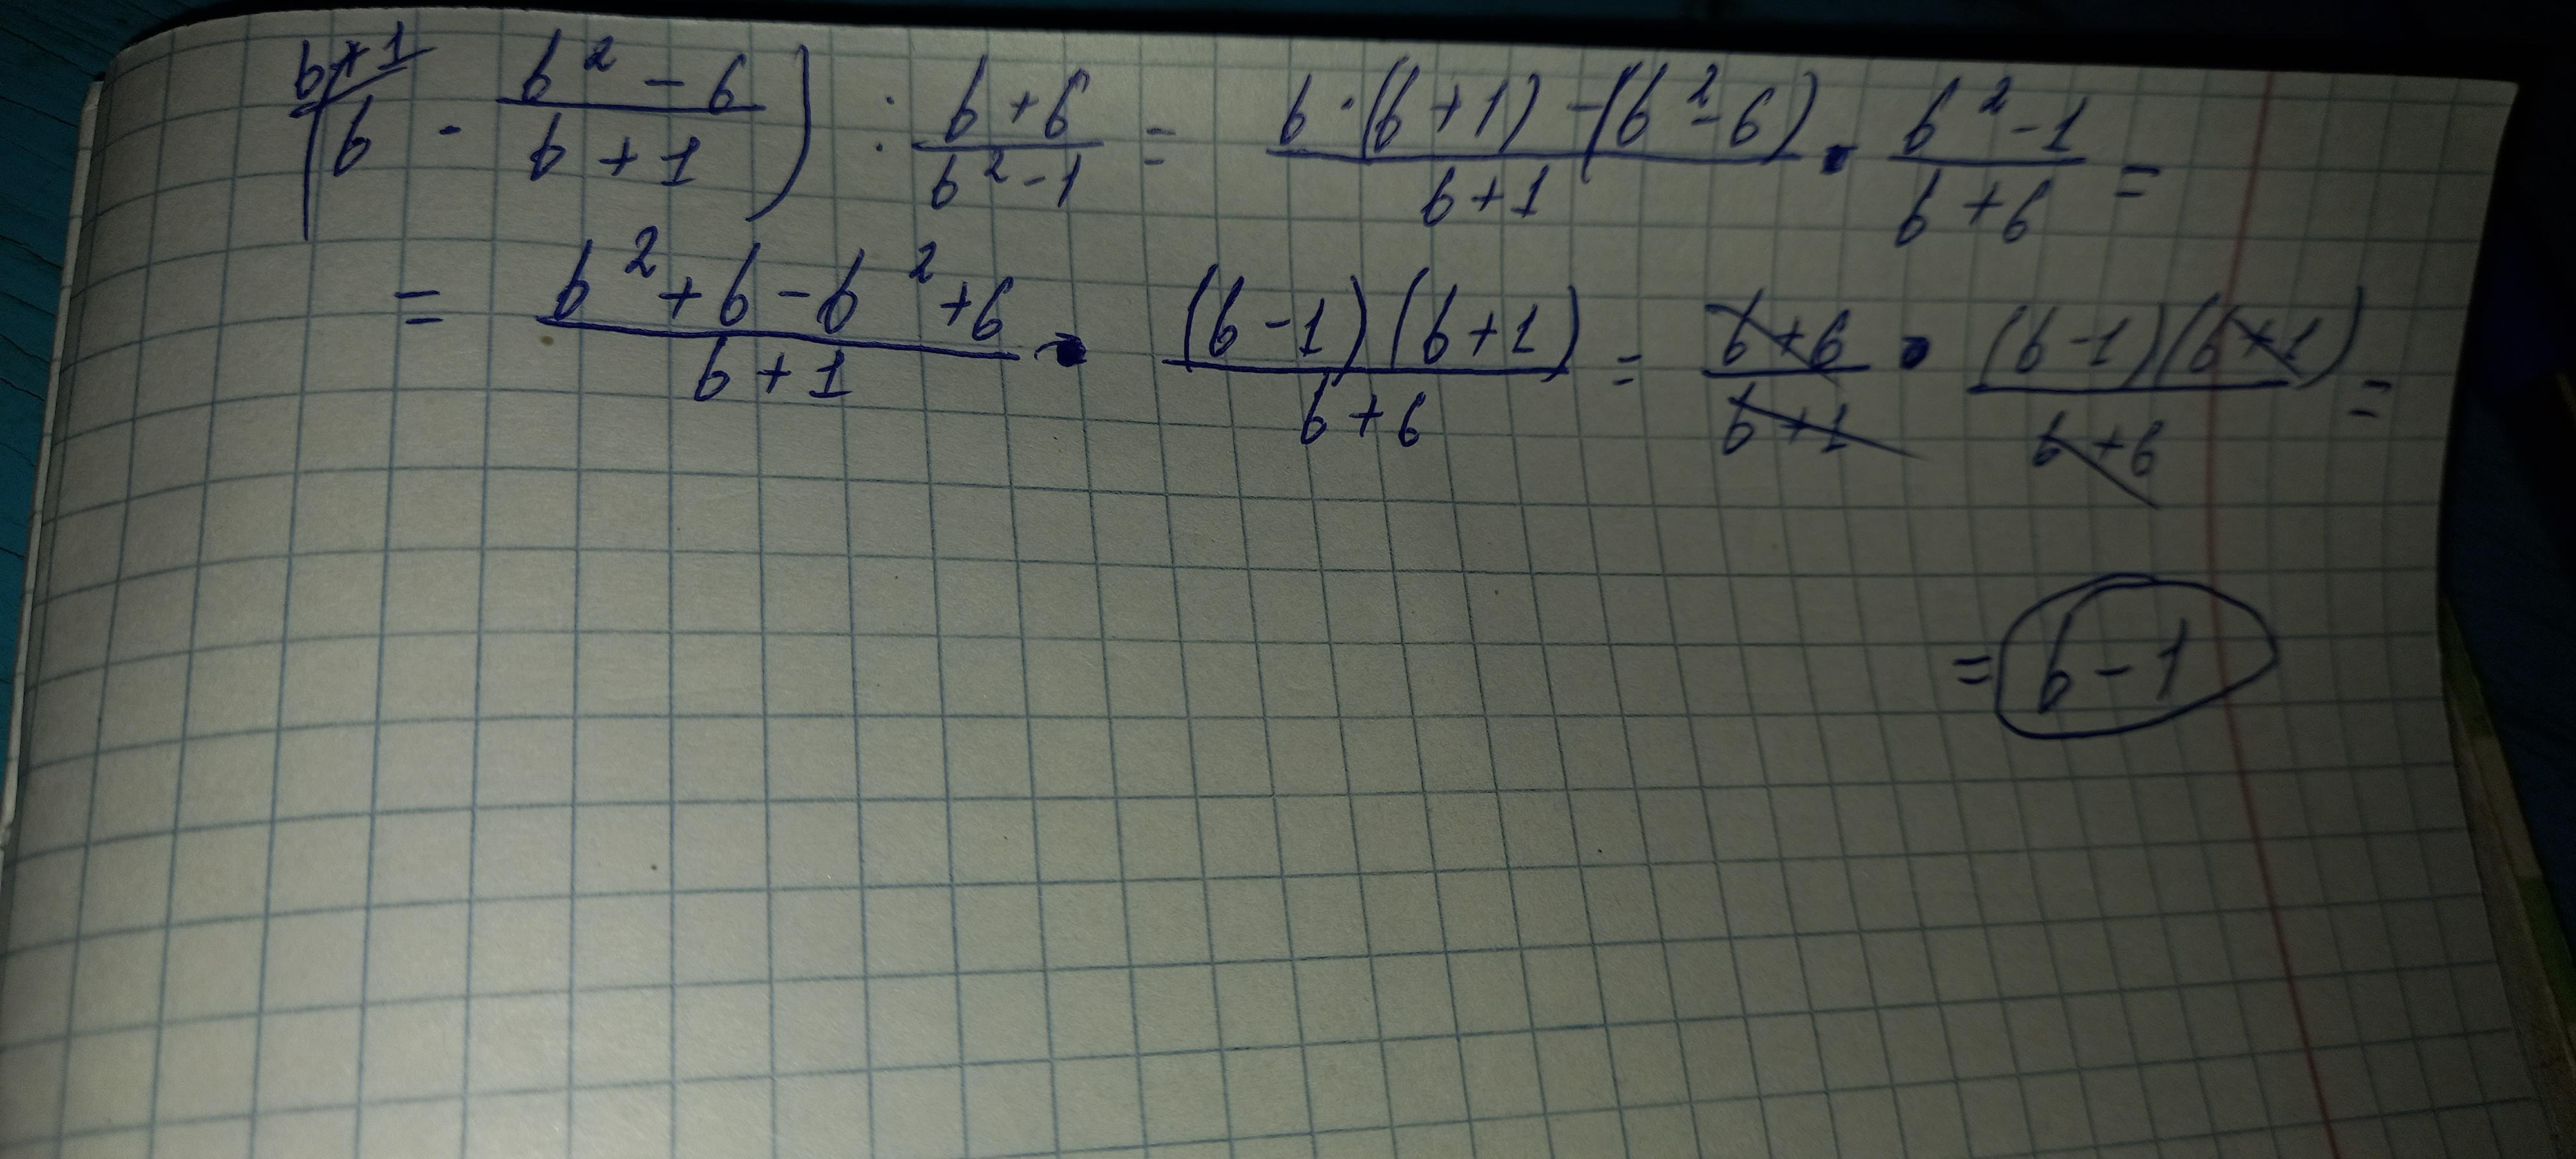 b+1/
(b - (b² - 6)/(b + 1)) : (b + 6)/(b² - 1) = (b · (b + 1) - (b² - 6))/(b + 1) · (b² - 1)/(b + 6) =
= (b² + b - b² + 6)/(b + 1) · ((b - 1)(b + 1))/(b + 6) = (b + 6)/(b + 1) · ((b - 1)(b + 1))/(b + 6) =
= b - 1